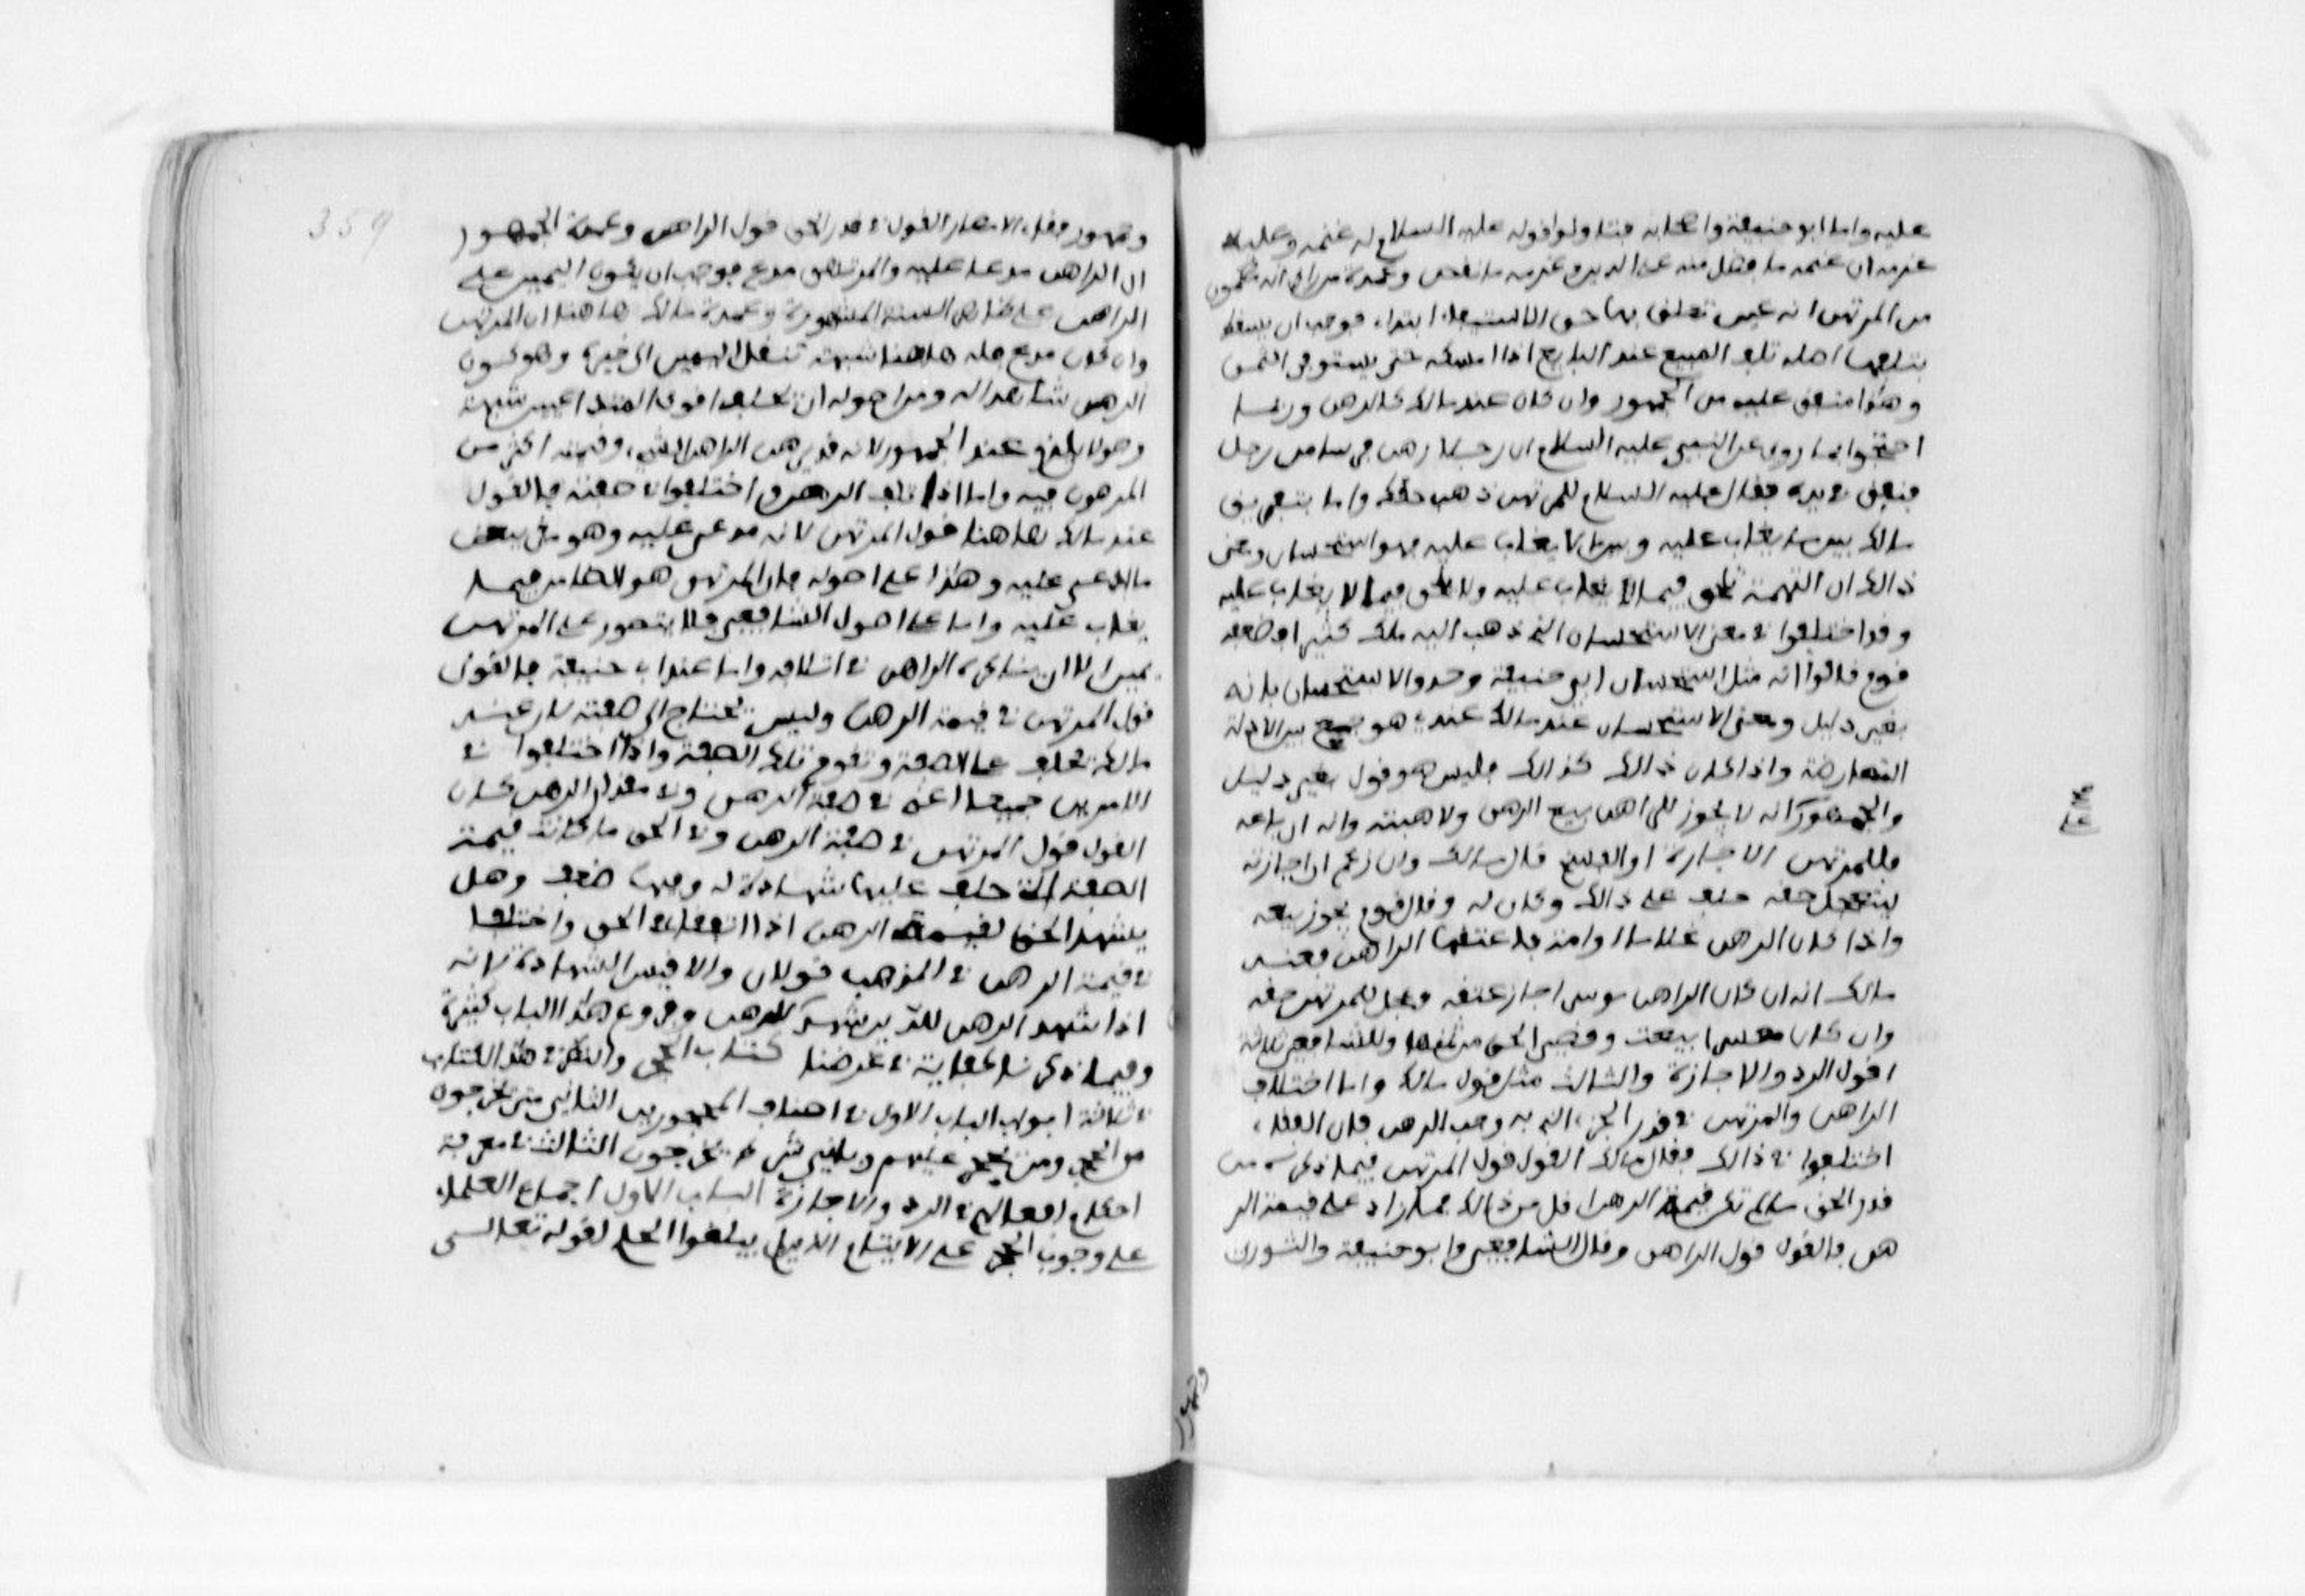 عليه واما ابو حنيفة واصحابه فتاولوا قوله عليه السلام له غنمه وعليه
غرمه ان غنمه ما فضل منه على الدين وغرمه ما نقص وعمدة من راى انه مضمون
من المرتهن انه عين تعلق بها حق الاستيفاء ابتداء فوجب ان يسقط
بتلفها اصله تلف المبيع عند البايع اذا امسكه حتى يستوفى الثمن
وهذا متفق عليه من الجمهور وان كان عند مالك كالرهن وربما
احتجوا بما روي عن النبي عليه السلام ان رجلا رهن فرسا من رجل
فنفق في يده فقال عليه السلام للمرتهن ذهب حقك واما بتفريق
مالك بين ما يغاب عليه وبين ما لا يغاب عليه فهو استحسان ومعنى
ذالك ان التهمة تلحق فيما يغاب عليه ولا تلحق فيما لا يغاب عليه
وقد اختلفوا في معنى الاستحسان الذي ذهب اليه ملك كثيرا فضعفه
قوم قالوا انه مثل استحسان ابي حنيفة وحدوا الاستحسان بانه
بغير دليل ومعنى الاستحسان عند مالك عنده هو جمع بين الادلة
المتعارضة واذا كان ذالك كذالك فليس هو قول بغير دليل
والجمهور انه لا يجوز للراهن بيع الرهن ولا هبته وانه ان باعه
فللمرتهن الاجازة او الفسخ قال مالك وان زعم ان اجازته
ليتعجل حقه حلف على ذالك وكان له وقال قوم يجوز بيعه
واذا كان الرهن غلاما او امة فاعتقها الراهن فعند
مالك انه ان كان الراهن موسرا جاز عتقه وعجل للمرتهن حقه
وان كان معسرا بيعت وقضى الحق من ثمنها وللشافعي ثلاثة
اقول الرد والاجازة والثالث مثل قول مالك واما اختلاف
الراهن والمرتهن في قدر الحق الذي به وجب الرهن فان الفقهاء
اختلفوا في ذالك فقال مالك القول قول المرتهن فيما ذكره من
قدر الحق ما لم تكن قيمة الرهن اقل من ذالك فما زاد على قيمة الر
هن فالقول قول الراهن وقال الشافعي وابو حنيفة والثوري
وجمهور
وجمهور فقهاء الامصار القول في قدر الحق قول الراهن وعمدة الجمهور
ان الراهن مدعا عليه والمرتهن مدع فوجب ان يكون اليمين على
الراهن على ظاهر السنة المشهورة وعمدة مالك هاهنا ان المرتهن
وان كان مدع فله هاهنا شبهة تنقل اليمين الى حيزه وهو كون
الرهن شاهدا له ومن اصوله ان يحلف اقوى المتداعيين شبهة
وهو لا يلزم عند الجمهور لانه قد يرهن الراهن الشيء وقيمته اكثر من
المرهون فيه واما اذا تلف الرهن واختلفوا في صفته فالقول
عند مالك هاهنا قول المرتهن لانه مدعى عليه وهو مقر ببعض
ما ادعى عليه وهذا على اصوله فان المرتهن هو الضامن فيما
يغاب عليه واما على اصول الشافعي فلا يتصور على المرتهن
يمين الا ان يناكره الراهن في اتلافه واما عند ابي حنيفة فالقول
قول المرتهن في قيمة الرهن وليس يحتاج الى صفة لان عند
مالك يحلف على الصفة وتقوم تلك الصفة واذا اختلفوا في
الامرين جميعا اعني في صفة الرهن وفي مقدار الرهن كان
القول قول المرتهن في صفة الرهن وفي الحق ما كانت قيمة
الصفة التي حلف عليها شاهدة له وفيها ضعف وهل
يشهد الحق لقيمة الرهن اذا اتفقا في الحق واختلفا
في قيمة الرهن في المذهب قولان والاقيس الشهادة لانه
اذا شهد الرهن للدين شهد الدين للرهن وفروع هذا الباب كثيرة
وفيما ذكرنا كفاية في غرضنا كتاب الحجر والنظر في هذا الكتاب
في ثلاثة ابواب الباب الاول في اصناف المحجورين الثاني متى يخرجون
من الحجر ومتى يحجر عليهم وباي شروط يخرجون الثالث في معرفة
احكام افعالهم في الرد والاجازة الباب الاول اجمع العلماء
على وجوب الحجر على الايتام الذين لم يبلغوا الحلم لقوله تعالى
359